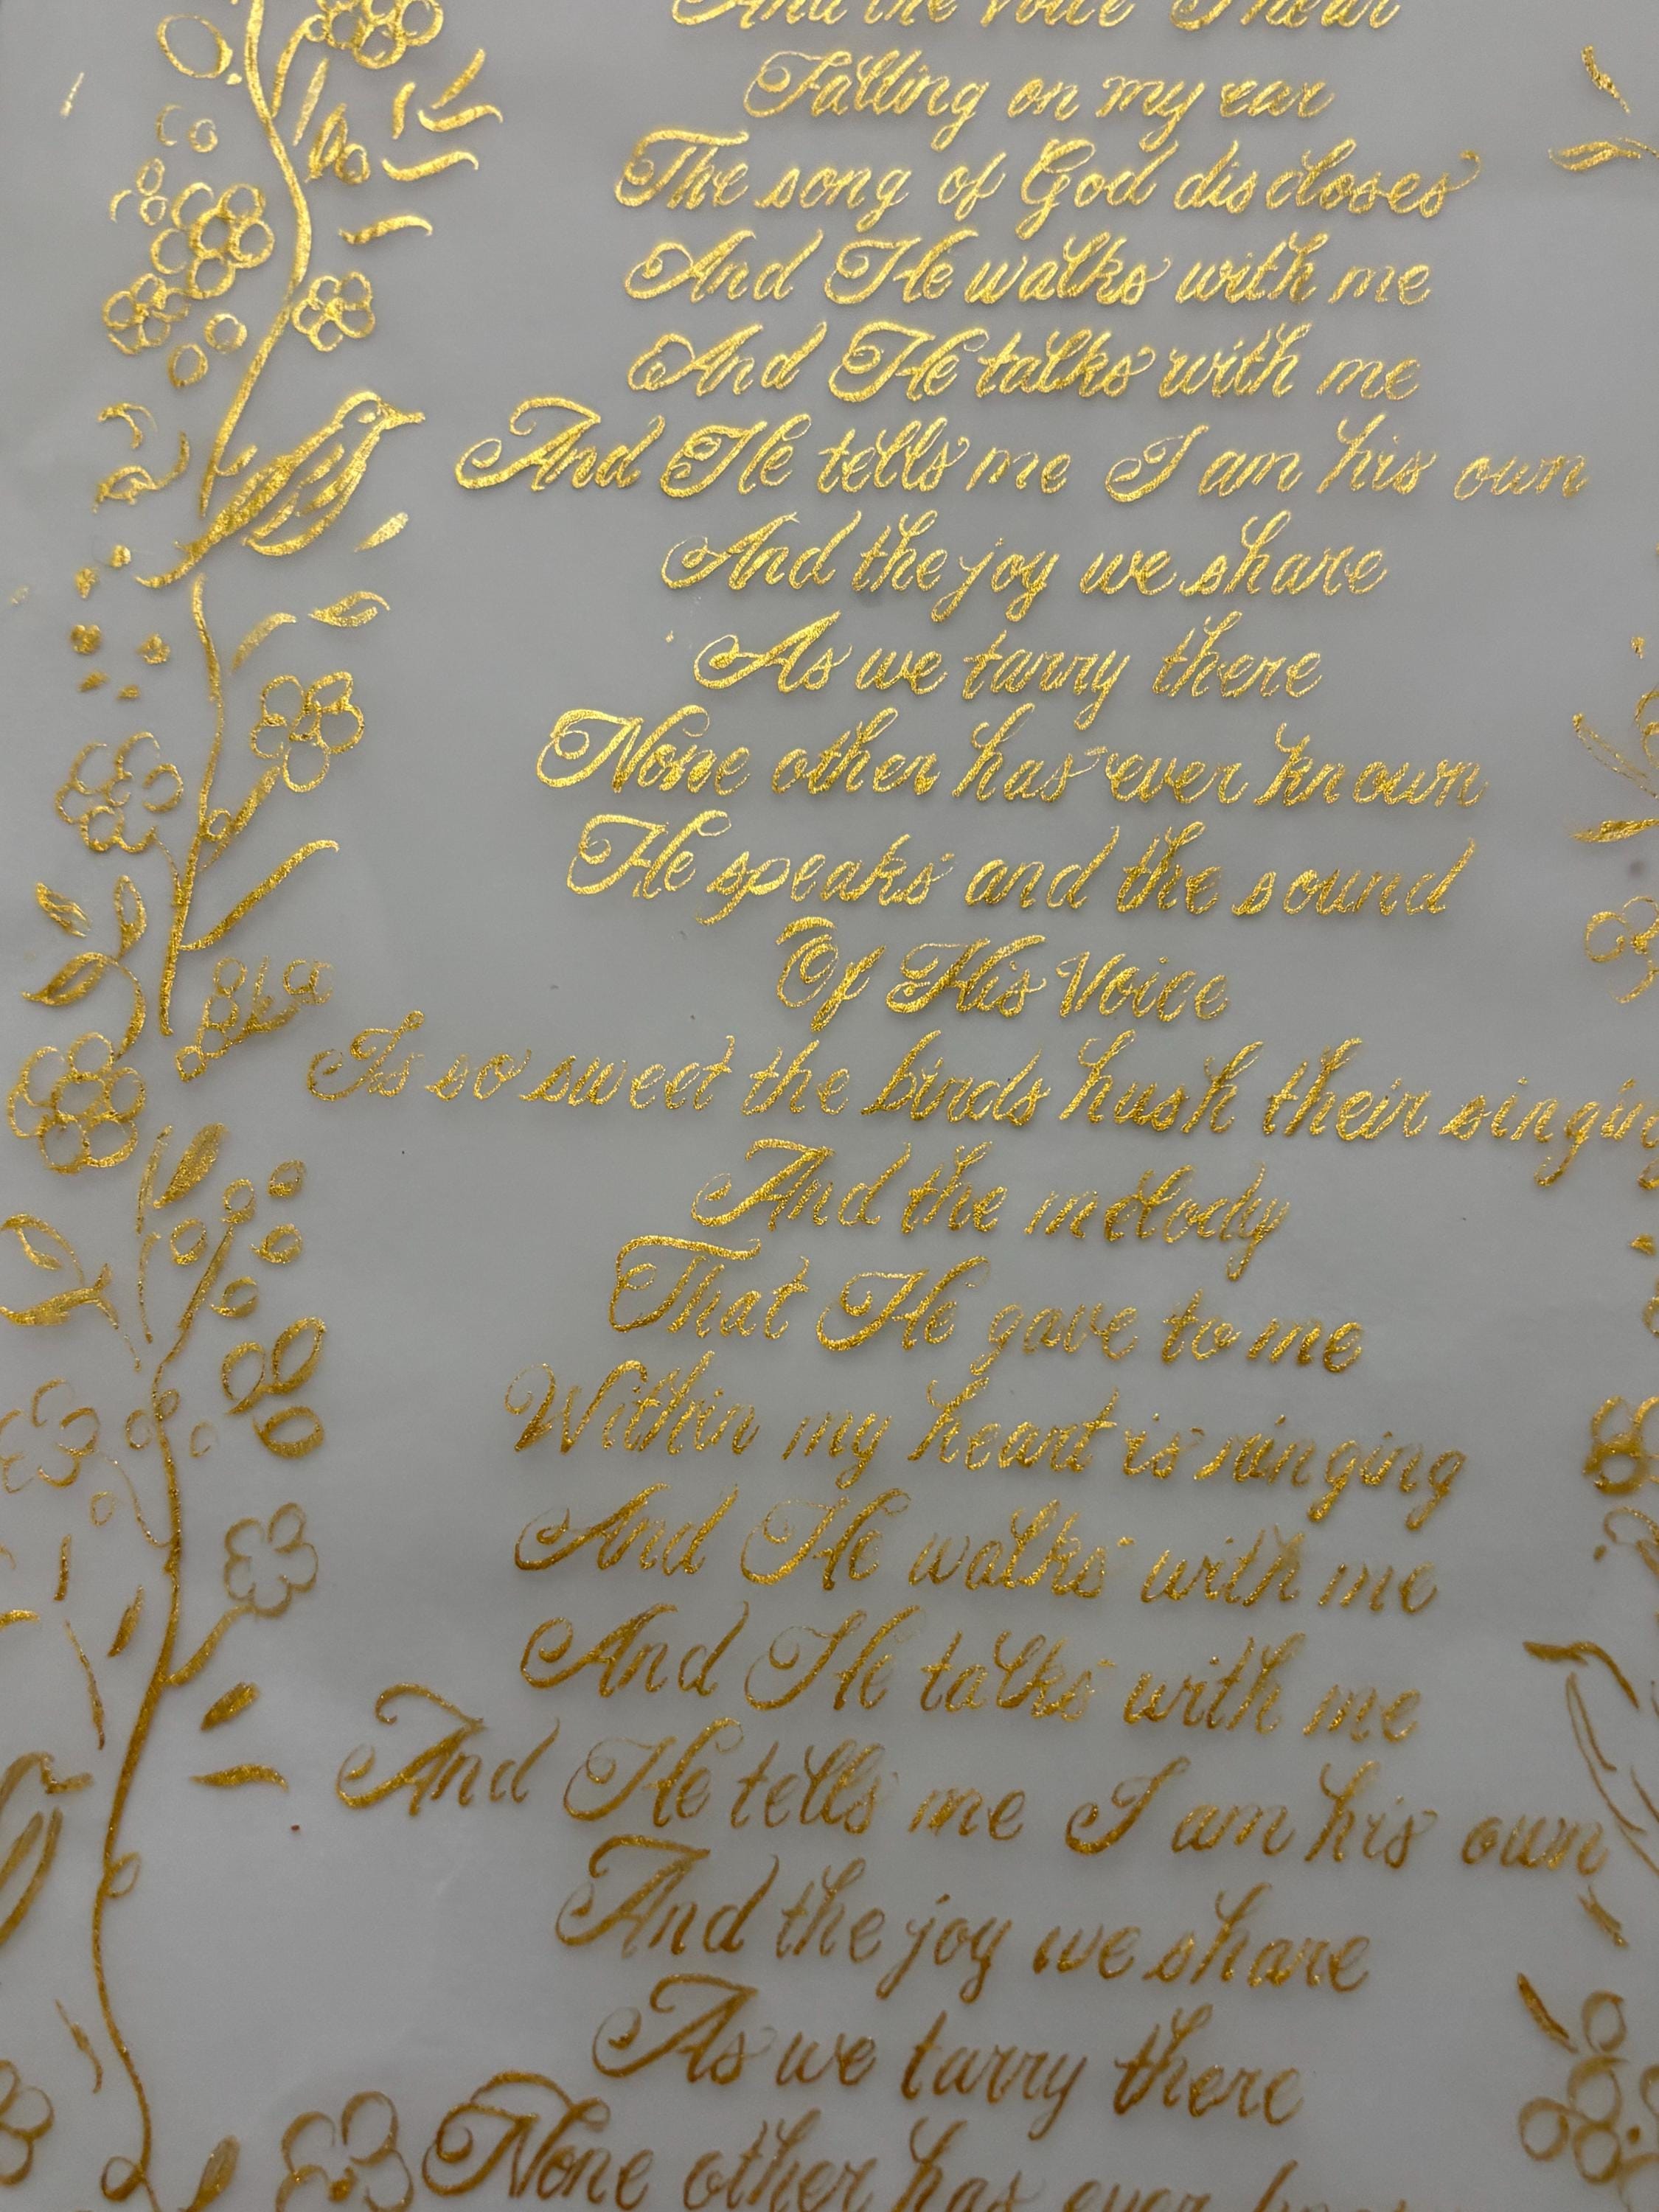 And the voice I hear
Falling on my ear
The song of God discloses
And He walks with me
And He talks with me
And He tells me I am his own
And the joy we share
As we tarry there
None other has ever known
He speaks and the sound
Of His Voice
Is so sweet the birds hush their singin
And the melody
That He gave to me
Within my heart is ringing
And He walks with me
And He talks with me
And He tells me I am his own
And the joy we share
As we tarry there
None other has ever